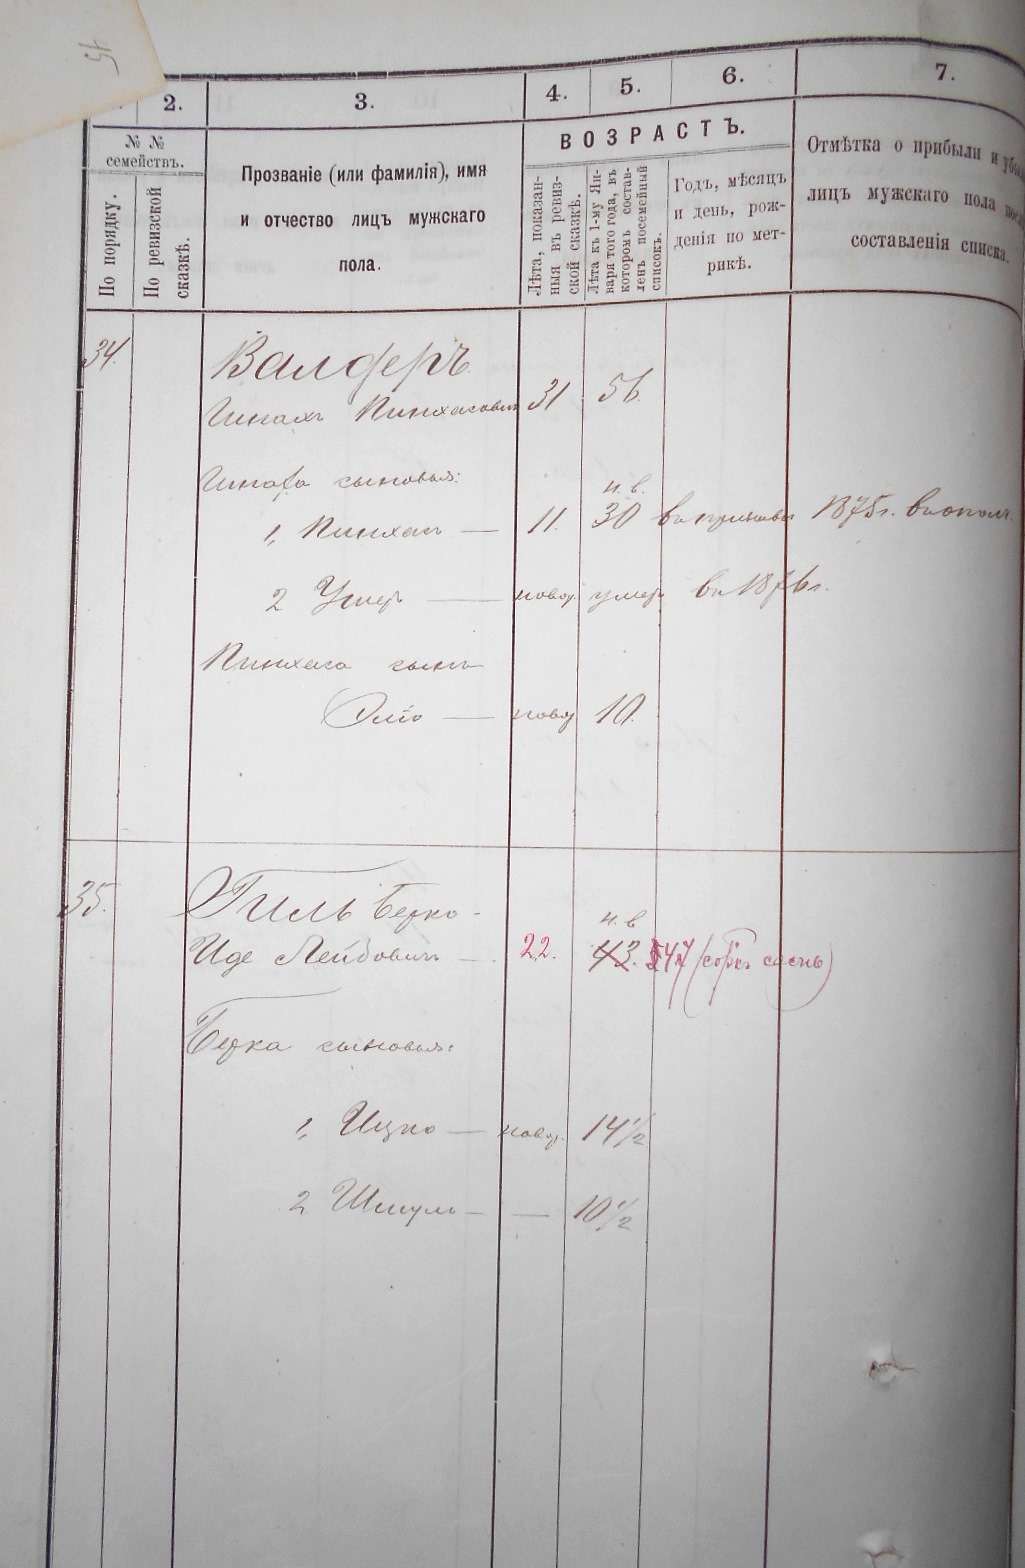 45
2. 3. 4. 5. 6. 7.
№ №
семействъ.
По порядку.
По ревизской
сказкѣ.
Прозваніе (или фамилія), имя
и отчество лицъ мужскаго
пола.
ВОЗРАСТЪ.
Лѣта, показан-
ныя въ ревиз-
ской сказкѣ.
Лѣта къ 1-му Ян-
варя того года, въ
которомъ состав-
ленъ посемейный
списокъ.
Годъ, мѣсяцъ
и день, рож-
денія по мет-
рикѣ.
Отмѣтка о прибыли и
лицъ мужскаго пола
составленія списка.
34. Валдеръ
Пинхасович 31 56.
сыновья:
н. в.
1, Пинхасъ — 11. 30 1875 г.
2 Ушеръ — новор. умеръ въ 1876 г.
Пинхаса сынъ
Эліо — новор 10.
35. Гиль Берко-
н. в
Иде Лейбовичъ — 22. 43. 47 (сорокъ семь)
Берка сыновья:
1, Ицко — новор. 14 1/2
2 Шмуль — — 10 1/2